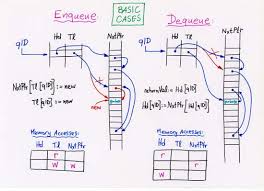 Enqueue:
BASIC CASES
Dequeue:
qID
Hd
Tl
NxtPtr
new
NxtPtr[Tl[qID]] := new
Tl[qID] := new
Memory Accesses:
Hd Tl NxtPtr
r
w w
qID
Hd
Tl
NxtPtr
returnVal := Hd[qID]
Hd[qID] := NxtPtr[Hd[qID]]
Memory Accesses:
Hd Tl NxtPtr
r r
w